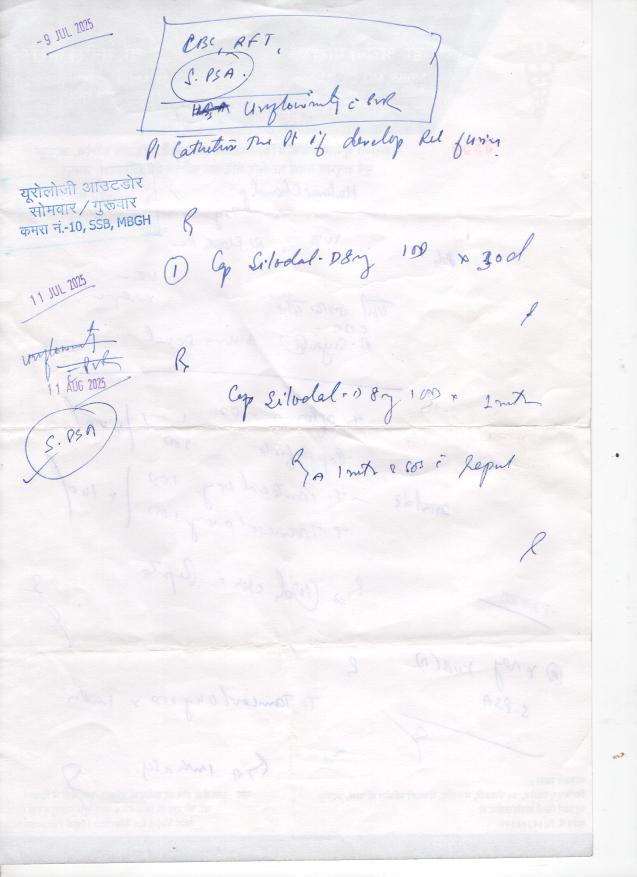 -9 JUL 2025
CBC, RFT,
S. PSA.
Uroflowmetry c PVR
Pt Catheterise The Pt if develop
यूरोलोजी आउटडोर
सोमवार / गुरूवार
कमरा नं.-10, SSB, MBGH
R
① Cap Silodal-D 8mg 1OD x 30d
11 JUL 2025
Uroflowmetry
c PVR
11 AUG 2025
R
Cap Silodal-D 8mg 1OD x 1 mth
S. PSA
R/A 1 mth c report